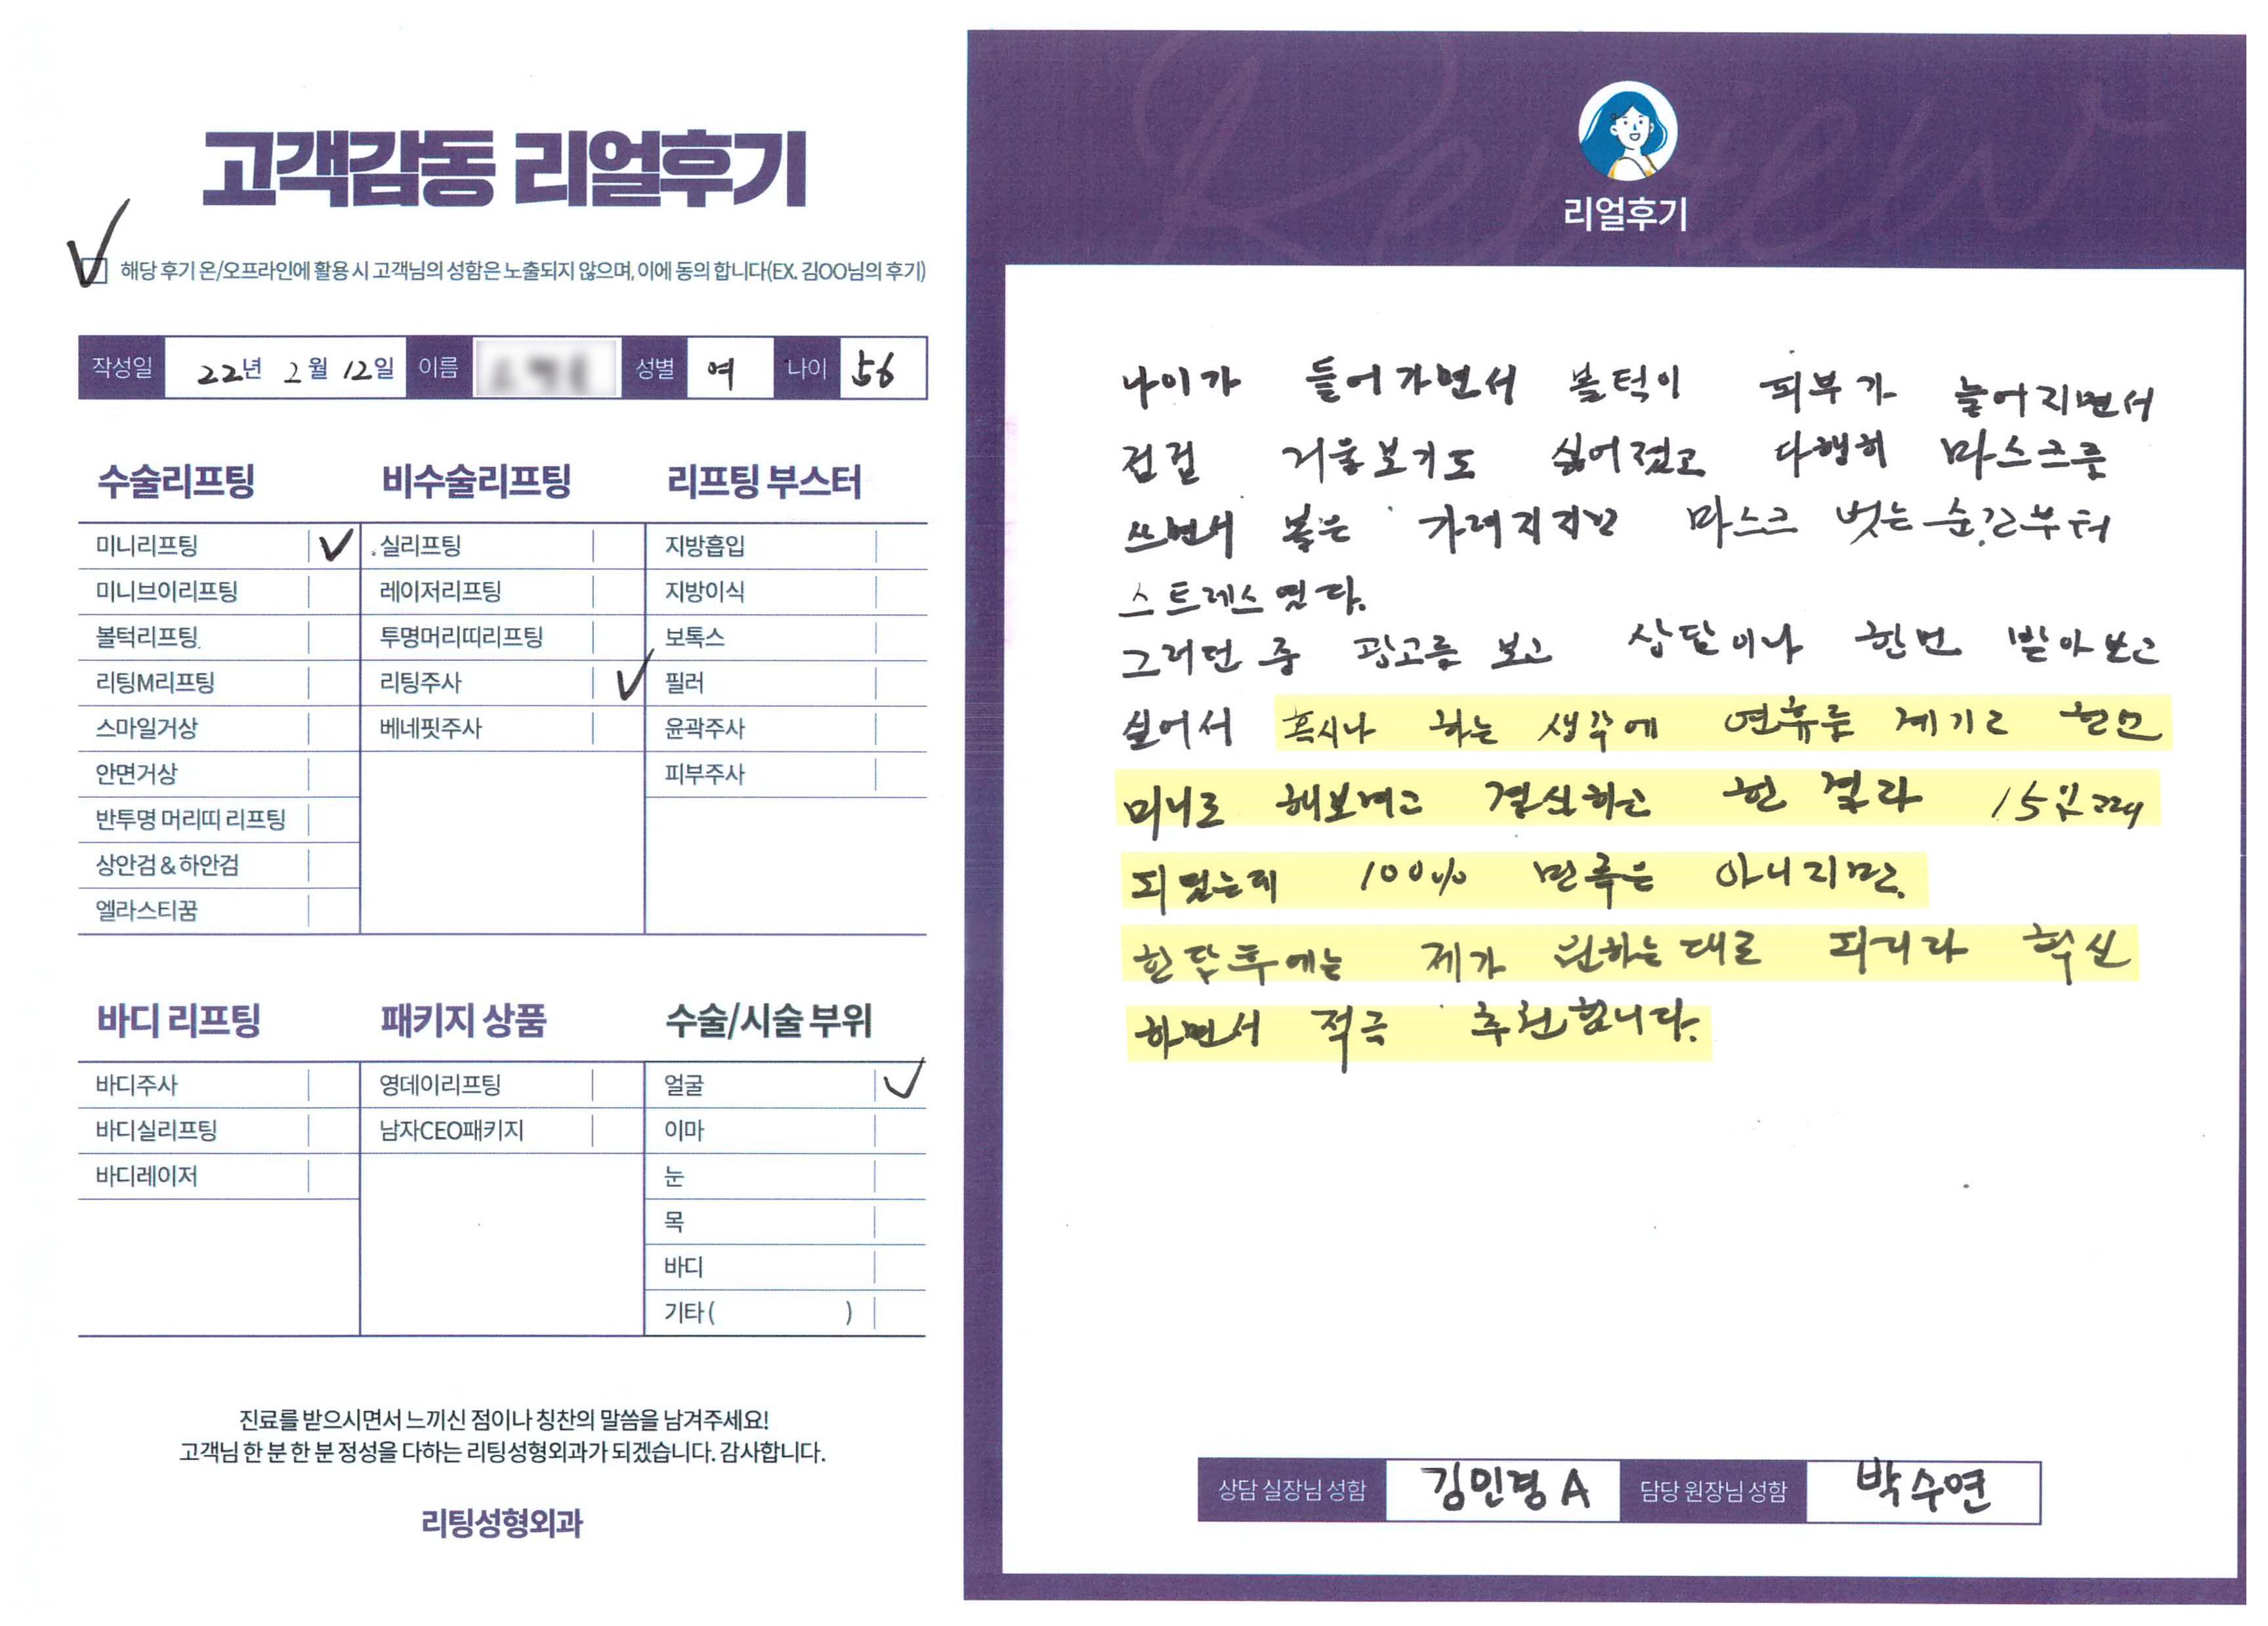 고객감동 리얼후기
해당 후기 온/오프라인에 활용 시 고객님의 성함은 노출되지 않으며, 이에 동의 합니다(EX. 김OO님의 후기)
작성일 22년 2월 12일 이름 성별 여 나이 56
수술리프팅
미니리프팅
미니브이리프팅
볼턱리프팅
리팅M리프팅
스마일거상
안면거상
반투명 머리띠 리프팅
상안검 & 하안검
엘라스티꿈
비수술리프팅
실리프팅
레이저리프팅
투명머리띠리프팅
리팅주사
베네핏주사
리프팅 부스터
지방흡입
지방이식
보톡스
필러
윤곽주사
피부주사
바디 리프팅
바디주사
바디실리프팅
바디레이저
패키지 상품
영데이리프팅
남자CEO패키지
수술/시술 부위
얼굴
이마
눈
목
바디
기타 ( )
진료를 받으시면서 느끼신 점이나 칭찬의 말씀을 남겨주세요!
고객님 한 분 한 분 정성을 다하는 리팅성형외과가 되겠습니다. 감사합니다.
리팅성형외과
Review
리얼후기
나이가 들어가면서 볼턱이 피부가 늘어지면서
점점 거울보기도 싫어졌고 다행히 마스크를
쓰면서 볼은 가려지지만 마스크 벗는 순간부터
스트레스였다.
그러던 중 광고를 보고 상담이나 한번 받아보고
싶어서 혹시나 하는 생각에 연휴를 계기로 한번
미니로 해보려고 결심하고 한 결과 15일째
피 되었는데 100% 만족은 아니지만.
한달후에는 제가 원하는대로 되리라 확신
하면서 적극 추천합니다.
상담 실장님 성함 김민경 A 담당 원장님 성함 박수연